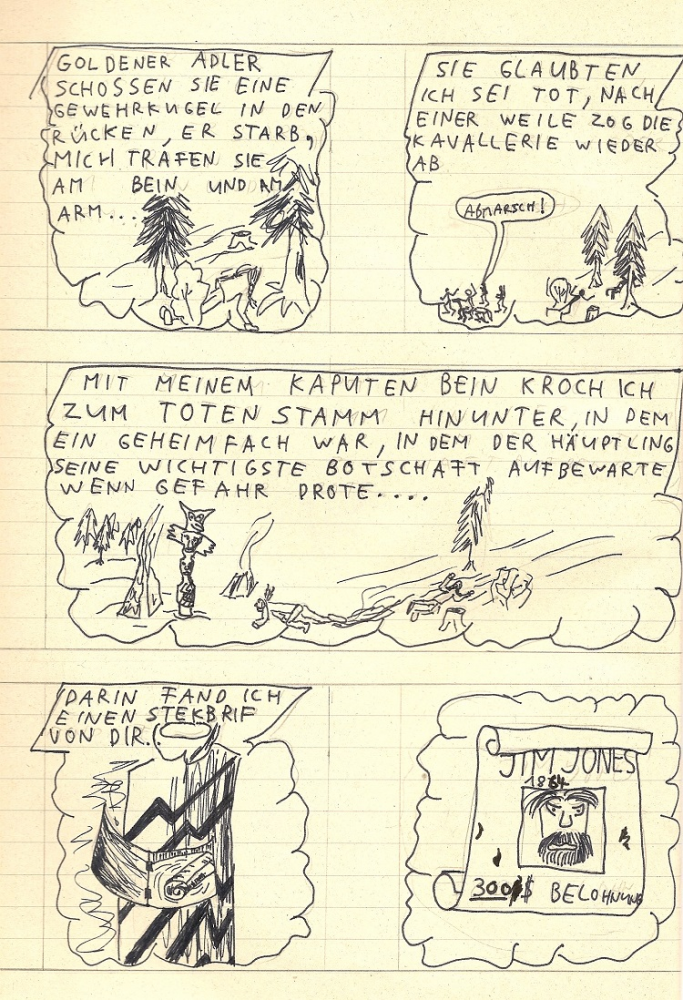 GOLDENER ADLER
SCHOSSEN SIE EINE
GEWEHRKUGEL IN DEN
RÜCKEN, ER STARB,
MICH TRAFEN SIE
AM BEIN UND AM
ARM...
SIE GLAUBTEN
ICH SEI TOT, NACH
EINER WEILE ZOG DIE
KAVALLERIE WIEDER
AB
ABMARSCH!
MIT MEINEM KAPUTEN BEIN KROCH ICH
ZUM TOTEN STAMM HINUNTER, IN DEM
EIN GEHEIMFACH WAR, IN DEM DER HÄUPTLING
SEINE WICHTIGSTE BOTSCHAFT AUFBEWARTE
WENN GEFAHR DROTE....
DARIN FAND ICH
EINEN STEKBRIF
VON DIR..
JIM JONES
1864
300$ BELOHNUNG